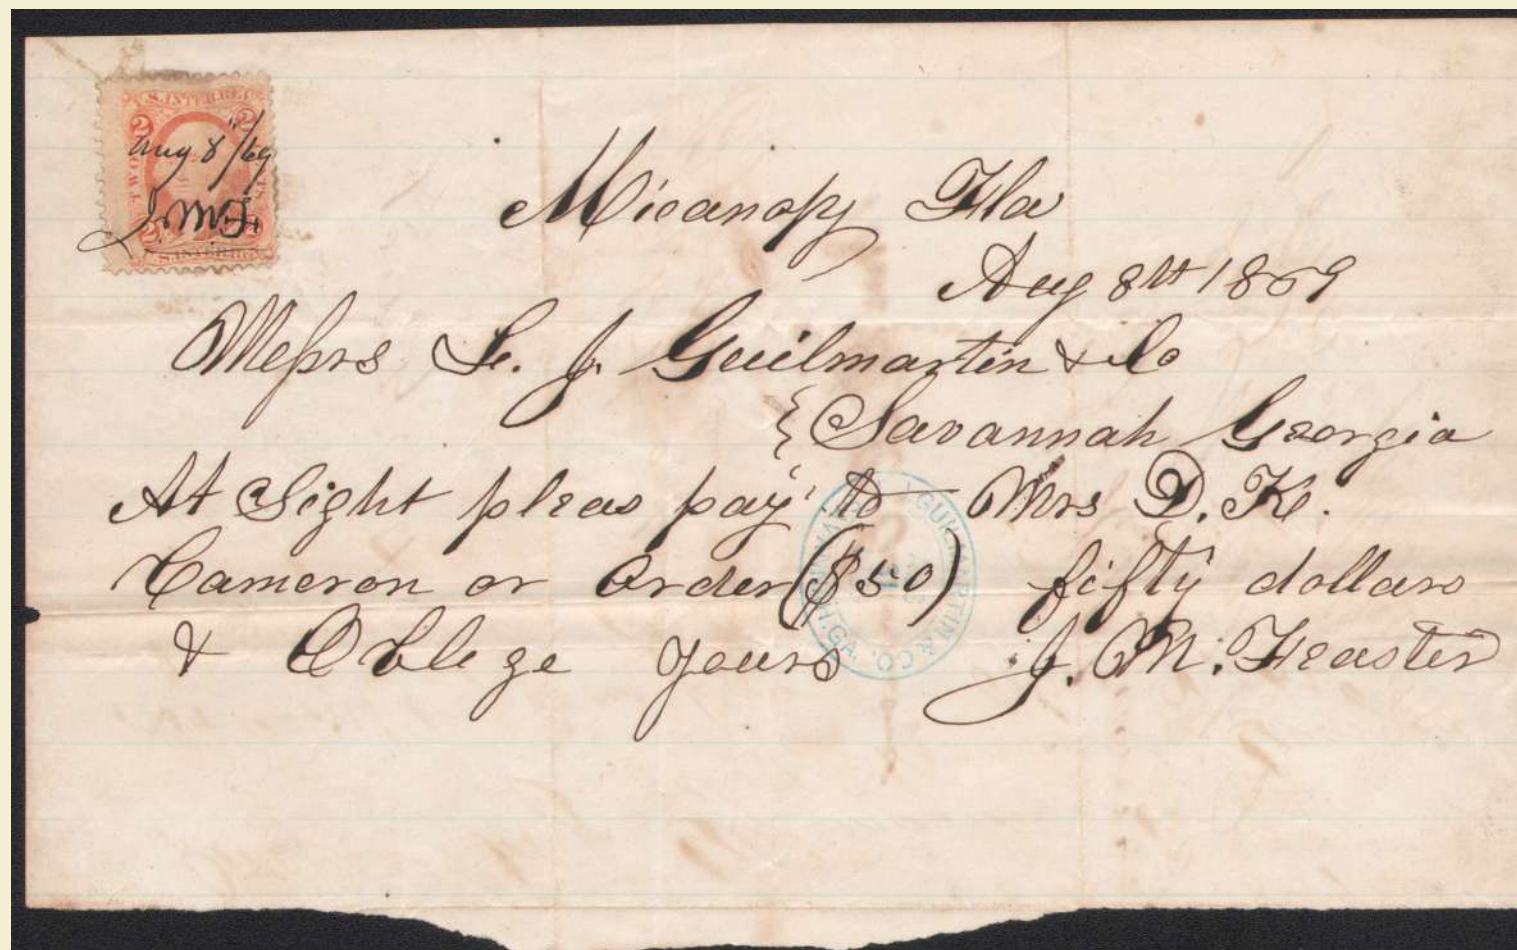 U.S. INTER. REV.
2 2
Aug 8"/69
TWO CENTS
J.M.F.
2 2
U.S. INTER. REV.
Micanopy Fla
Aug 8th 1869
Messrs L. J. Guilmartin & Co
{ Savannah Georgia
At Sight pleas pay to Mrs D. K.
Cameron or order ($50) fifty dollars
& Oblege yours J. M. Feaster
GUILMARTIN & CO.
SAVANNAH, GA.